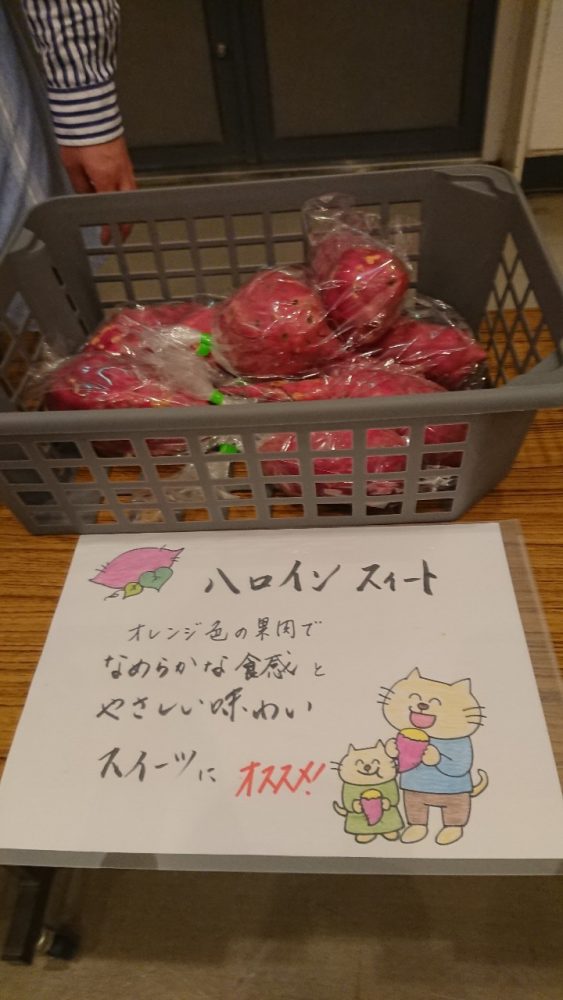 ハロイン スィート
オレンジ色の果肉で
なめらかな食感と
やさしい味わい
スイーツに オススメ!